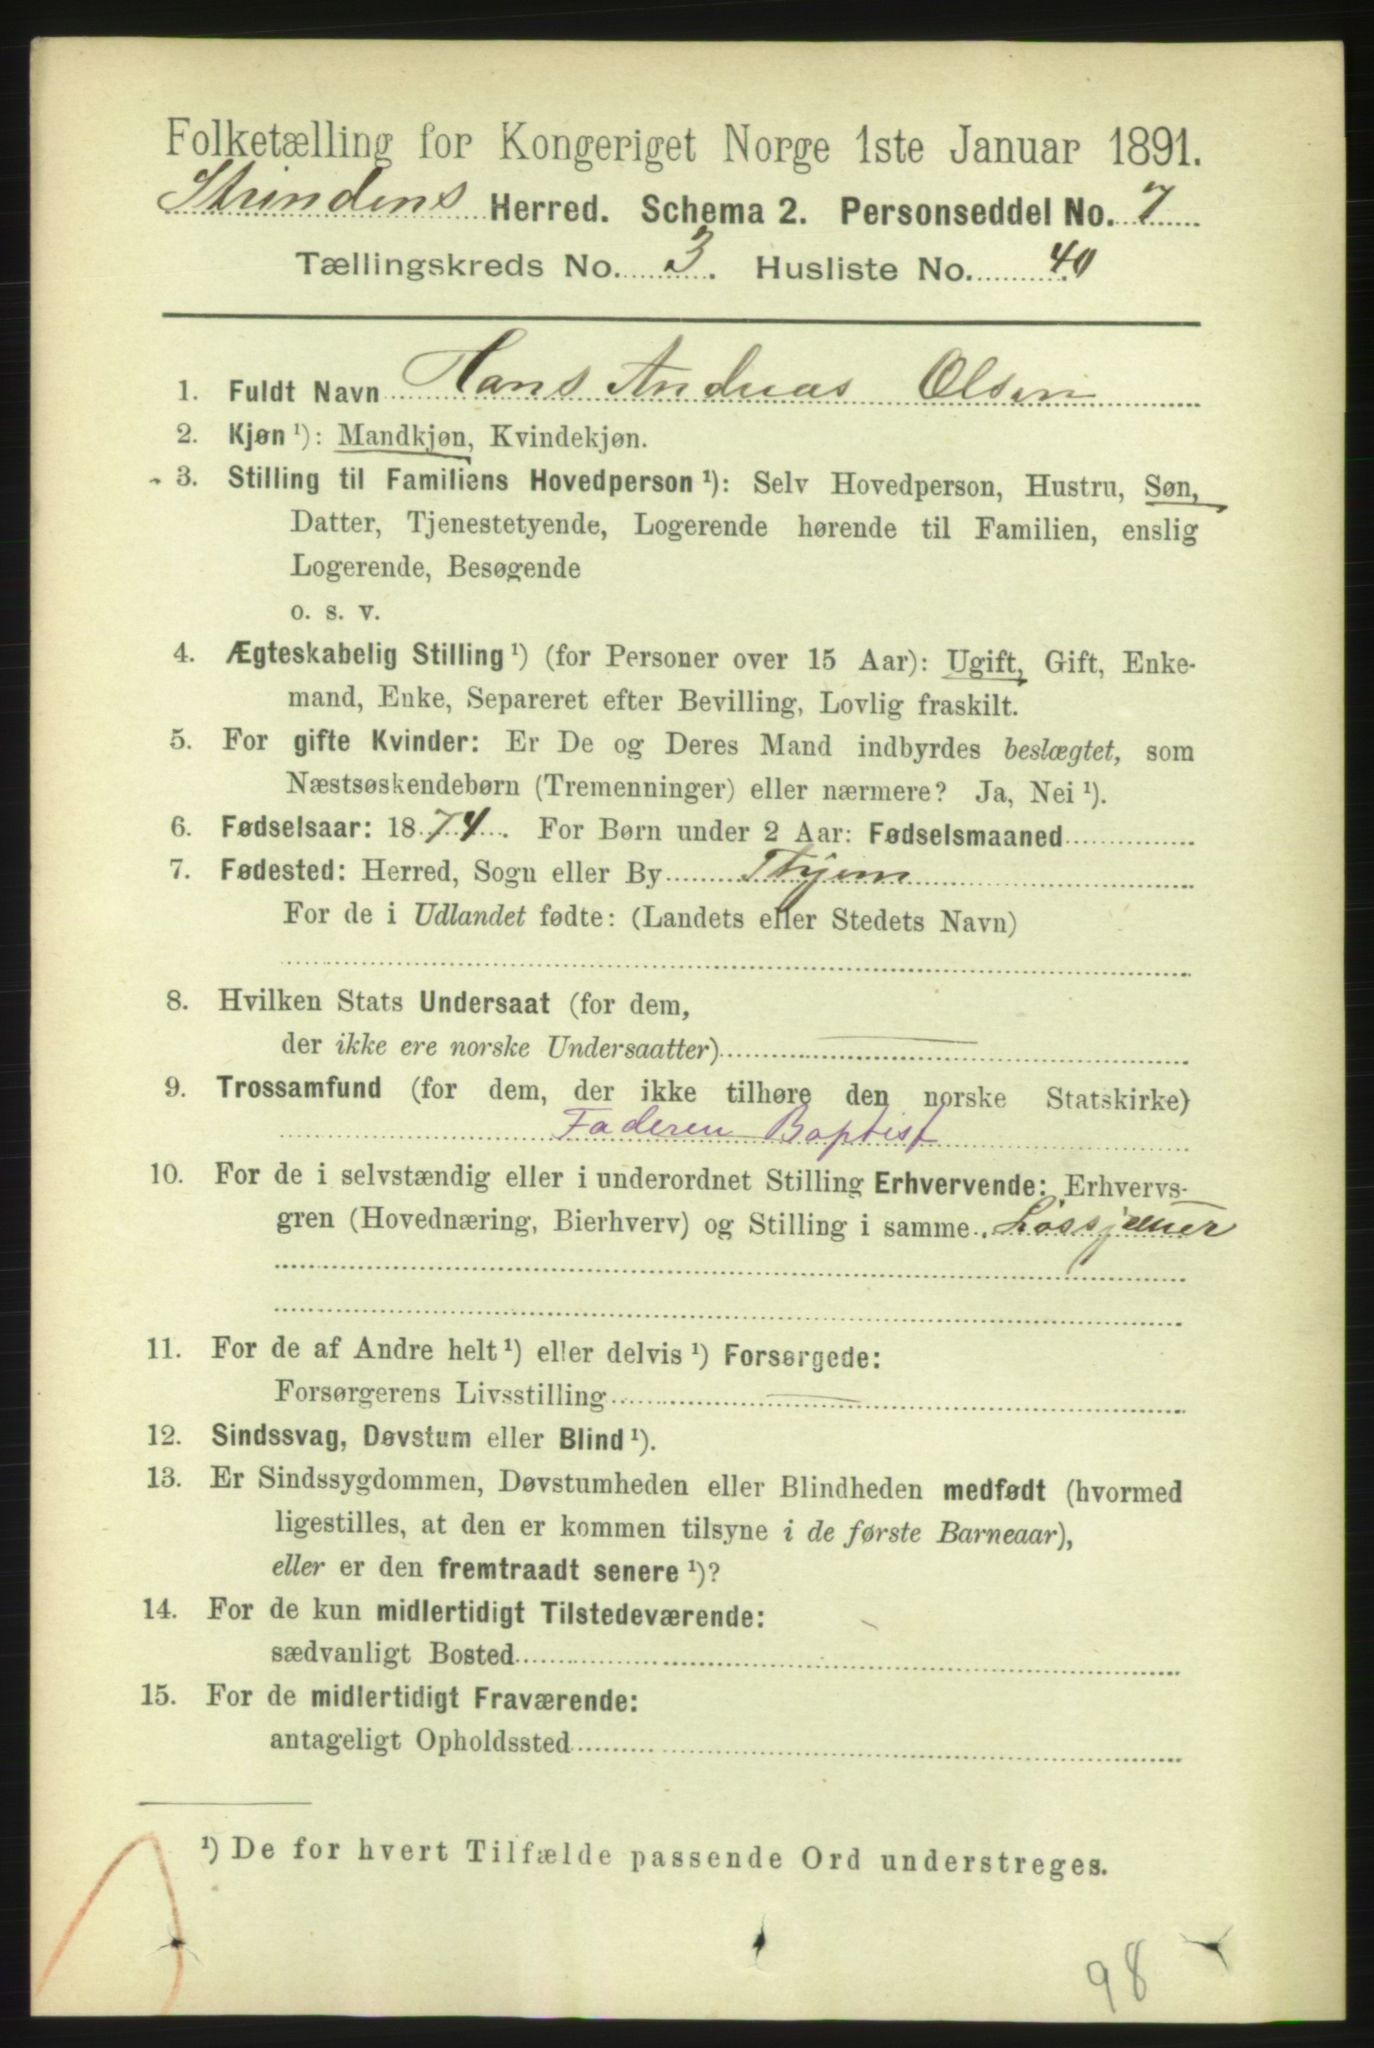 Folketælling for Kongeriget Norge 1ste Januar 1891.
Strindens Herred. Schema 2. Personseddel No. 7
Tællingskreds No. 3. Husliste No. 40
1. Fuldt Navn Hans Andreas Olsen
2. Kjøn ¹): Mandkjøn, Kvindekjøn.
3. Stilling til Familiens Hovedperson ¹): Selv Hovedperson, Hustru, Søn,
Datter, Tjenestetyende, Logerende hørende til Familien, enslig
Logerende, Besøgende
o. s. v.
4. Ægteskabelig Stilling ¹) (for Personer over 15 Aar): Ugift, Gift, Enke-
mand, Enke, Separeret efter Bevilling, Lovlig fraskilt.
5. For gifte Kvinder: Er De og Deres Mand indbyrdes beslægtet, som
Næstsøskendebørn (Tremenninger) eller nærmere? Ja, Nei ¹).
6. Fødselsaar: 1874. For Børn under 2 Aar: Fødselsmaaned
7. Fødested: Herred, Sogn eller By Thjem
For de i Udlandet fødte: (Landets eller Stedets Navn)
8. Hvilken Stats Undersaat (for dem,
der ikke ere norske Undersaatter)
9. Trossamfund (for dem, der ikke tilhøre den norske Statskirke)
Faderen Baptist
10. For de i selvstændig eller i underordnet Stilling Erhvervende: Erhvervs-
gren (Hovednæring, Bierhverv) og Stilling i samme. Løssjauer
11. For de af Andre helt ¹) eller delvis ¹) Forsørgede:
Forsørgerens Livsstilling
12. Sindssvag, Døvstum eller Blind ¹).
13. Er Sindssygdommen, Døvstumheden eller Blindheden medfødt (hvormed
ligestilles, at den er kommen tilsyne i de første Barneaar),
eller er den fremtraadt senere ¹)?
14. For de kun midlertidigt Tilstedeværende:
sædvanligt Bosted
15. For de midlertidigt Fraværende:
antageligt Opholdssted
¹) De for hvert Tilfælde passende Ord understreges.
98